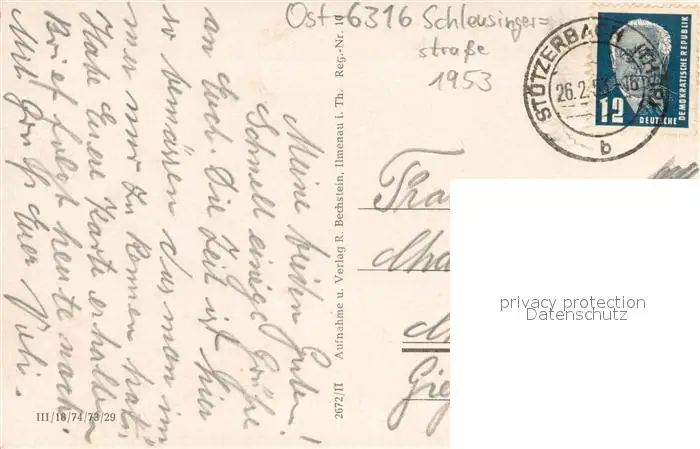 Ost-6316 Schleusinger=
straße
1953
STÜTZERBACH (THÜR)
26.2.53-16
b
12
DEUTSCHE DEMOKRATISCHE REPUBLIK
Meine beiden Guten!
Schnell einige Grüße
an Euch. Die Zeit ist hier
so bemessen das man im
mer nur zu Rennen hat.
Habe Euere Karte erhalten
Brief folgt heute nach.
Mit Gruß Euer
Aufnahme u. Verlag R. Bechstein, Ilmenau i. Th. Reg.-Nr. 10
2672/II
III/18/74/73/29
privacy protection
Datenschutz